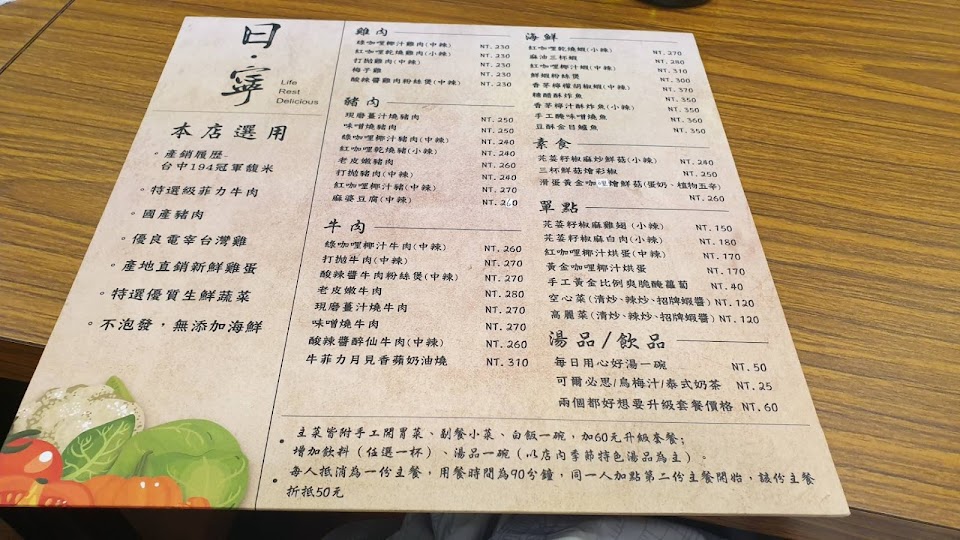 日·寧
Life
Rest
Delicious
本店選用
。產銷履歷-
台中194冠軍馥米
。特選級菲力牛肉
。國產豬肉
。優良電宰台灣雞
。產地直銷新鮮雞蛋
。特選優質生鮮蔬菜
。不泡發，無添加海鮮
雞肉
綠咖哩椰汁雞肉(中辣) NT. 230
紅咖哩乾燒雞肉(小辣) NT. 230
打拋雞肉(中辣) NT. 230
梅子雞 NT. 230
酸辣醬雞肉粉絲煲(中辣) NT. 230
豬肉
現磨薑汁燒豬肉 NT. 250
味噌燒豬肉 NT. 250
綠咖哩椰汁豬肉(中辣) NT. 240
紅咖哩乾燒豬(小辣) NT. 240
老皮嫩豬肉 NT. 260
打拋豬肉(中辣) NT. 240
紅咖哩椰汁豬(中辣) NT. 270
麻婆豆腐(中辣) NT. 260
牛肉
綠咖哩椰汁牛肉(中辣) NT. 260
打拋牛肉(中辣) NT. 270
酸辣醬牛肉粉絲煲(中辣) NT. 270
老皮嫩牛肉 NT. 280
現磨薑汁燒牛肉 NT. 270
味噌燒牛肉 NT. 270
酸辣醬醉仙牛肉(中辣) NT. 260
牛菲力月見香蘋奶油燒 NT. 310
海鮮
紅咖哩乾燒蝦(小辣) NT. 270
麻油三杯蝦 NT. 280
紅咖哩椰汁蝦(中辣) NT. 310
鮮蝦粉絲煲 NT. 300
香茅檸檬胡椒蝦(中辣) NT. 370
糖醋酥炸魚 NT. 350
香茅椰汁酥炸魚(小辣) NT. 350
手工醃味噌燒魚 NT. 360
豆酥金目鱸魚 NT. 350
素食
芫荽籽椒麻炒鮮菇(小辣) NT. 240
三杯鮮菇燴彩椒 NT. 250
滑蛋黃金咖哩燴鮮菇(蛋奶、植物五辛)
NT. 260
單點
芫荽籽椒麻雞翅 (小辣) NT. 150
芫荽籽椒麻白肉(小辣) NT. 180
紅咖哩椰汁烘蛋(中辣) NT. 170
黃金咖哩椰汁烘蛋 NT. 170
手工黃金比例爽脆醃蘿蔔 NT. 40
空心菜(清炒、辣炒、招牌蝦醬) NT. 120
高麗菜(清炒、辣炒、招牌蝦醬) NT. 120
湯品/飲品
每日用心好湯一碗 NT. 50
可爾必思/烏梅汁/泰式奶茶 NT. 25
兩個都好想要升級套餐價格 NT. 60
• 主菜皆附手工開胃菜、副餐小菜、白飯一碗，加60元升級套餐;
增加飲料（任選一杯）、湯品一碗（以店內季節特色湯品為主）。
• 每人抵消為一份主餐，用餐時間為90分鐘，同一人加點第二份主餐開始，該份主餐
折抵50元